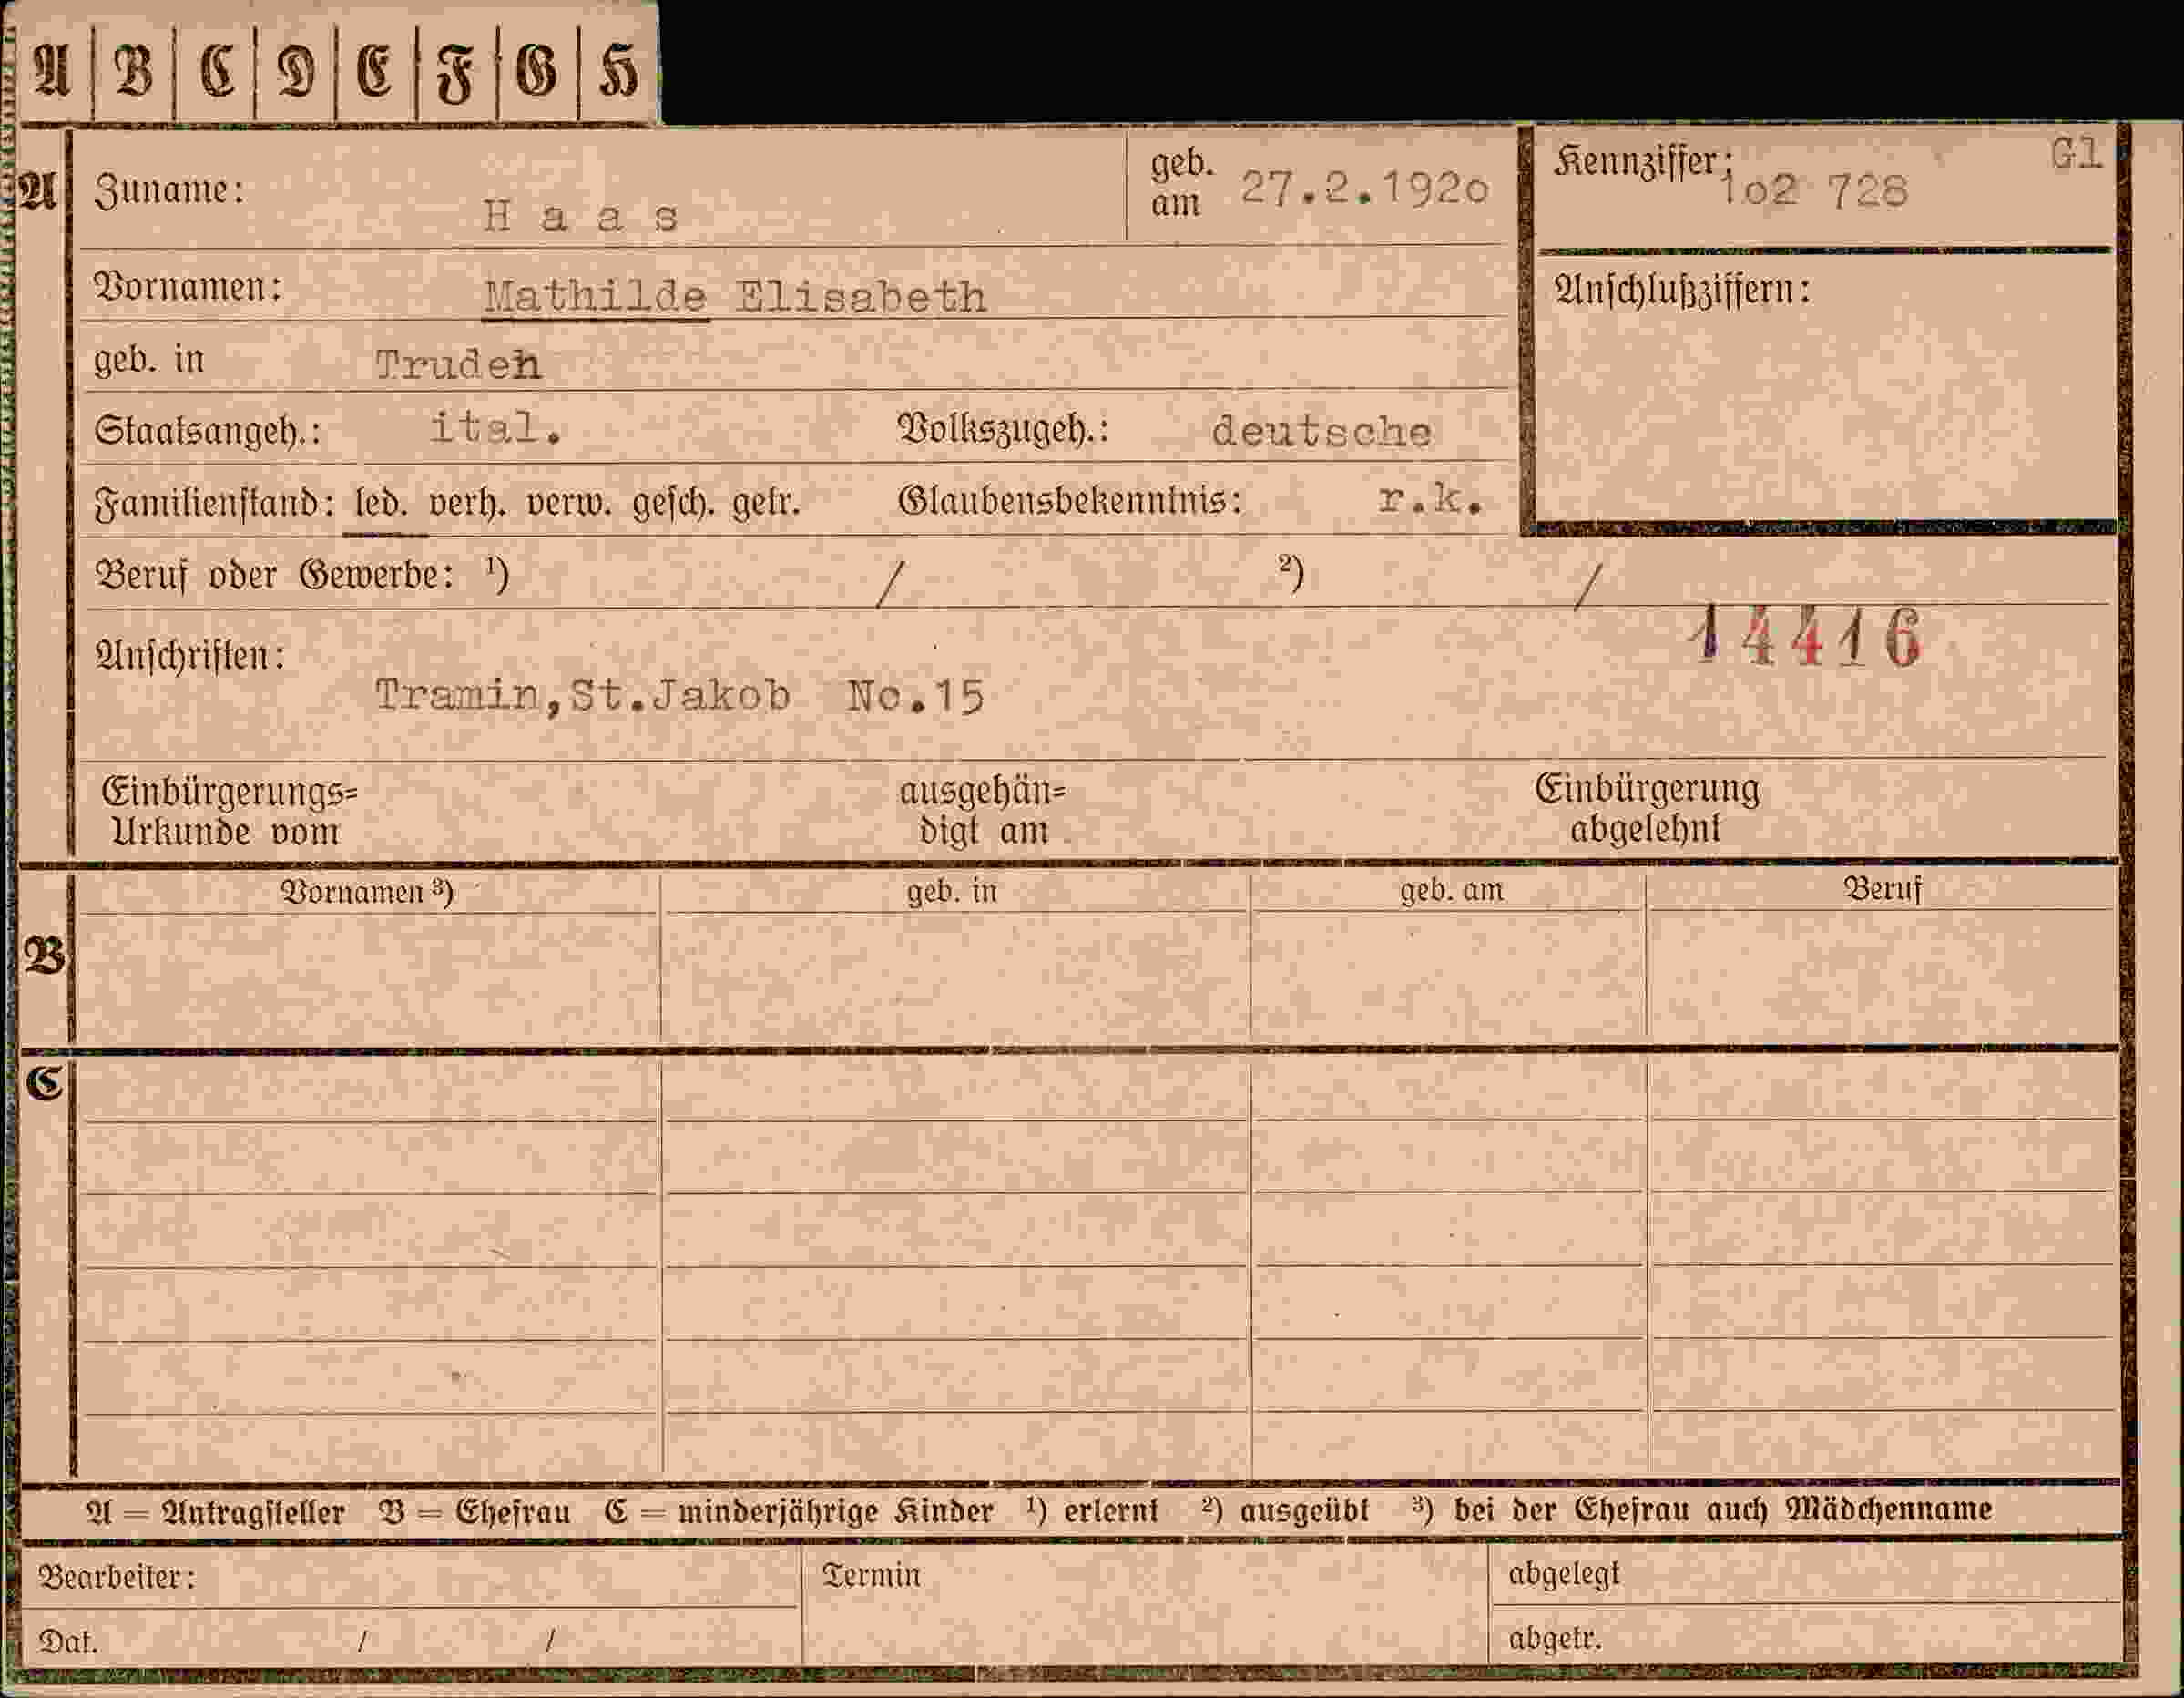 A B C D E F G H
A Zuname: H a a s geb. am 27.2.192o Kennziffer: 1o2 728 Gl
Vornamen: Mathilde Elisabeth Anschlußziffern:
geb. in Truden
Staatsangeh.: ital. Volkszugeh.: deutsche
Familienstand: led. verh. verw. gesch. getr. Glaubensbekenntnis: r.k.
Beruf oder Gewerbe: ¹) / ²) /
14416
Anschriften:
Tramin,St.Jakob No.15
Einbürgerungs= ausgehän= Einbürgerung
Urkunde vom digt am abgelehnt
Vornamen ³) geb. in geb. am Beruf
B
C
A = Antragsteller B = Ehefrau C = minderjährige Kinder ¹) erlernt ²) ausgeübt ³) bei der Ehefrau auch Mädchenname
Bearbeiter: Termin abgelegt
Dat. / / abgetr.